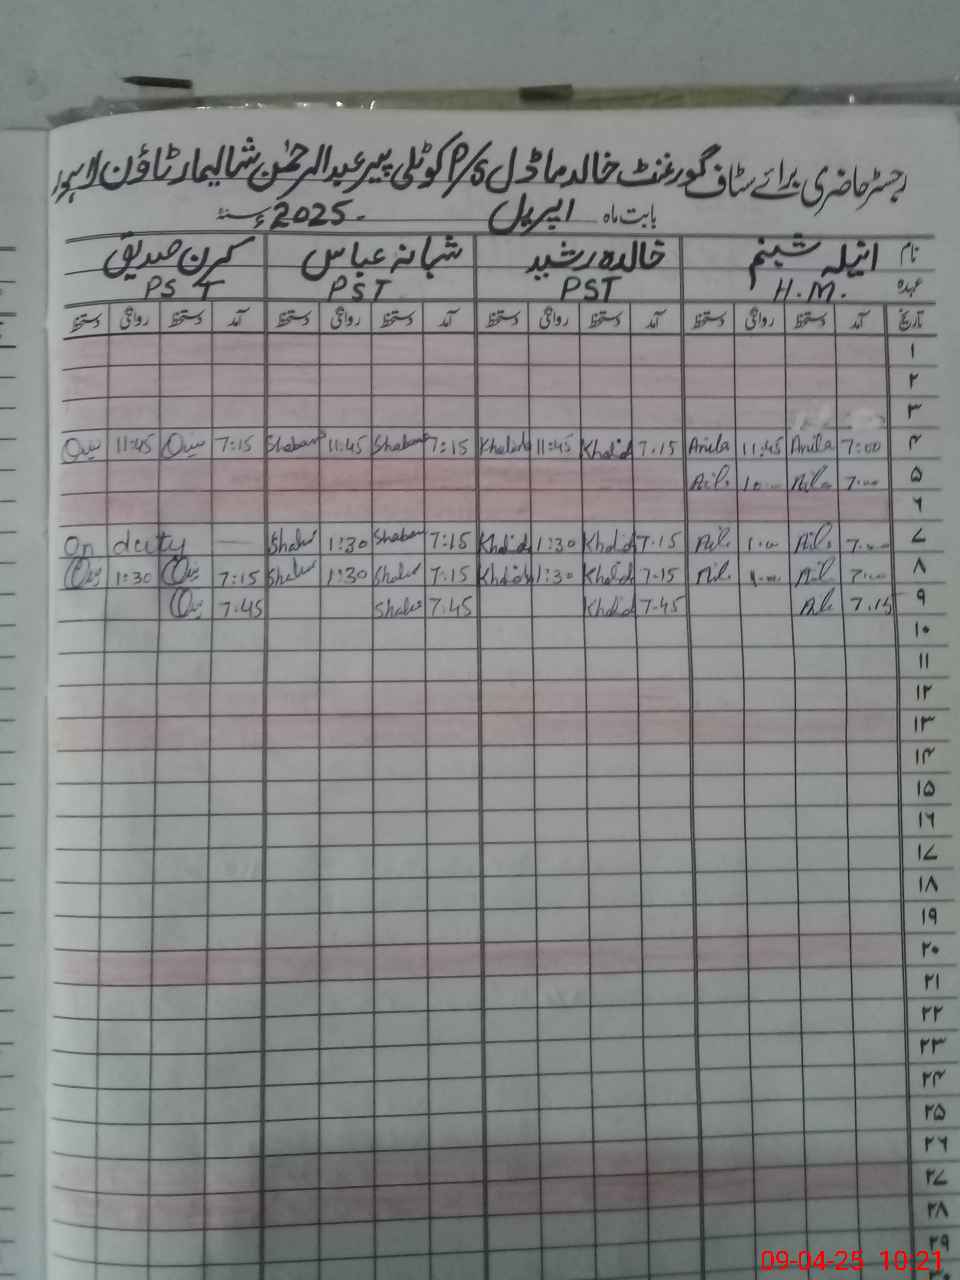 رجسٹر حاضری برائے سٹاف گورنمنٹ خالد ماڈل P/S کوٹلی پیر عبدالرحمٰن شالیمار ٹاؤن لاہور
بابت ماہ اپریل 2025ء
نام انیلہ شبنم خالدہ رشید شبانہ عباس کرن صدیق
عہدہ H.M. PST PST PST
تاریخ آمد دستخط روانگی دستخط آمد دستخط روانگی دستخط آمد دستخط روانگی دستخط آمد دستخط روانگی دستخط
۱
۲
۳
۴ 7:00 Anila 11:45 Anila 7.15 Khalid 11:45 Khalid 7:15 Shaban 11:45 Shaban 7:15 11:45
۵ 7:00 10:00
۶
۷ 7:00 1:00 7.15 Khalid 1:30 Khalid 7:15 Shaban 1:30 On duty
۸ 7:00 7.15 Khalid 1:30 Khalid 7:15 1:30 7:15 1:30
۹ 7.15 7.45 Khalid 7.45 7.45
۱۰
۱۱
۱۲
۱۳
۱۴
۱۵
۱۶
۱۷
۱۸
۱۹
۲۰
۲۱
۲۲
۲۳
۲۴
۲۵
۲۶
۲۷
۲۸
۲۹
09-04-25 10:21